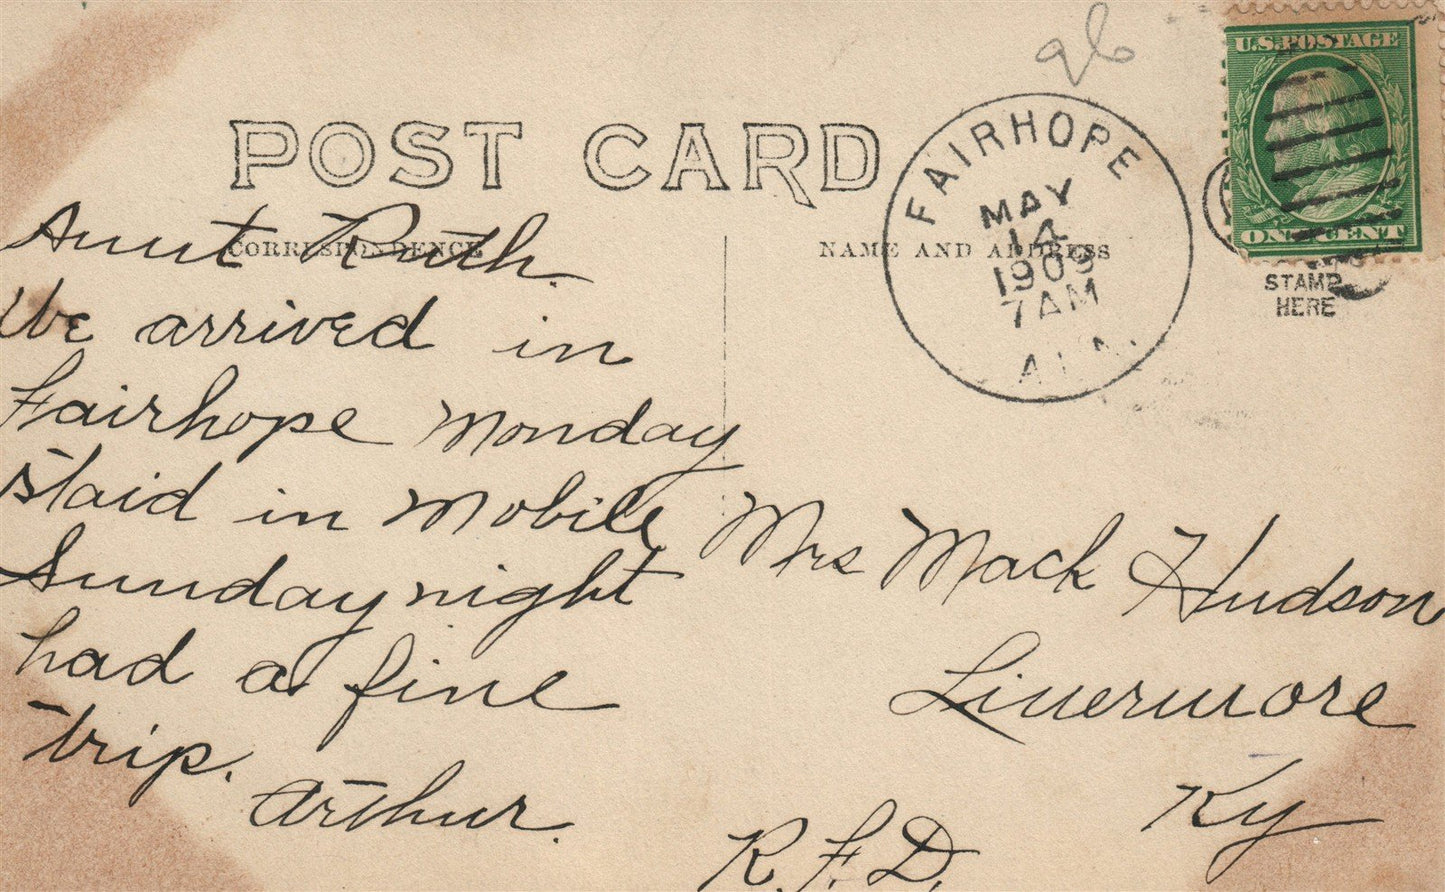 96
U.S. POSTAGE
ONE CENT
STAMP
HERE
POST CARD
FAIRHOPE
MAY
14
1909
7 AM
ALA.
CORRESPONDENCE
NAME AND ADDRESS
Aunt Ruth.
We arrived in
Fairhope Monday
staid in Mobile
Sunday night
had a fine
trip.
Arthur.
Mrs Mack Hudson
Livermore
Ky
R.F.D.